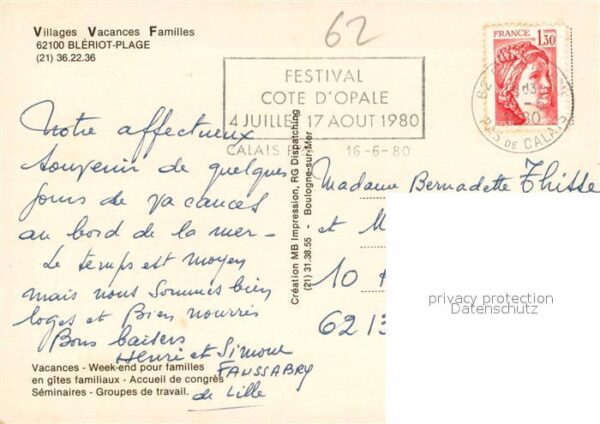 Villages Vacances Familles
62100 BLÉRIOT-PLAGE
(21) 36.22.36
62
FESTIVAL
COTE D'OPALE
4 JUILLET 17 AOUT 1980
CALAIS 16-6-80
FRANCE 1,30
62
80
PAS DE CALAIS
Notre affectueux
souvenir de quelques
jours de vacances
au bord de la mer -
Le temps est moyen
mais nous sommes bien
logés et Bien nourris
Bons baisers
Henri et Simone
FAUSSABRY
de Lille
Création MB Impression, RG Dispatching
(21) 31.38.55 Boulogne-sur-Mer
Madame Bernadette Thisse
et M
10
6213
privacy protection
Datenschutz
Vacances - Week-end pour familles
en gîtes familiaux - Accueil de congrès
Séminaires - Groupes de travail.